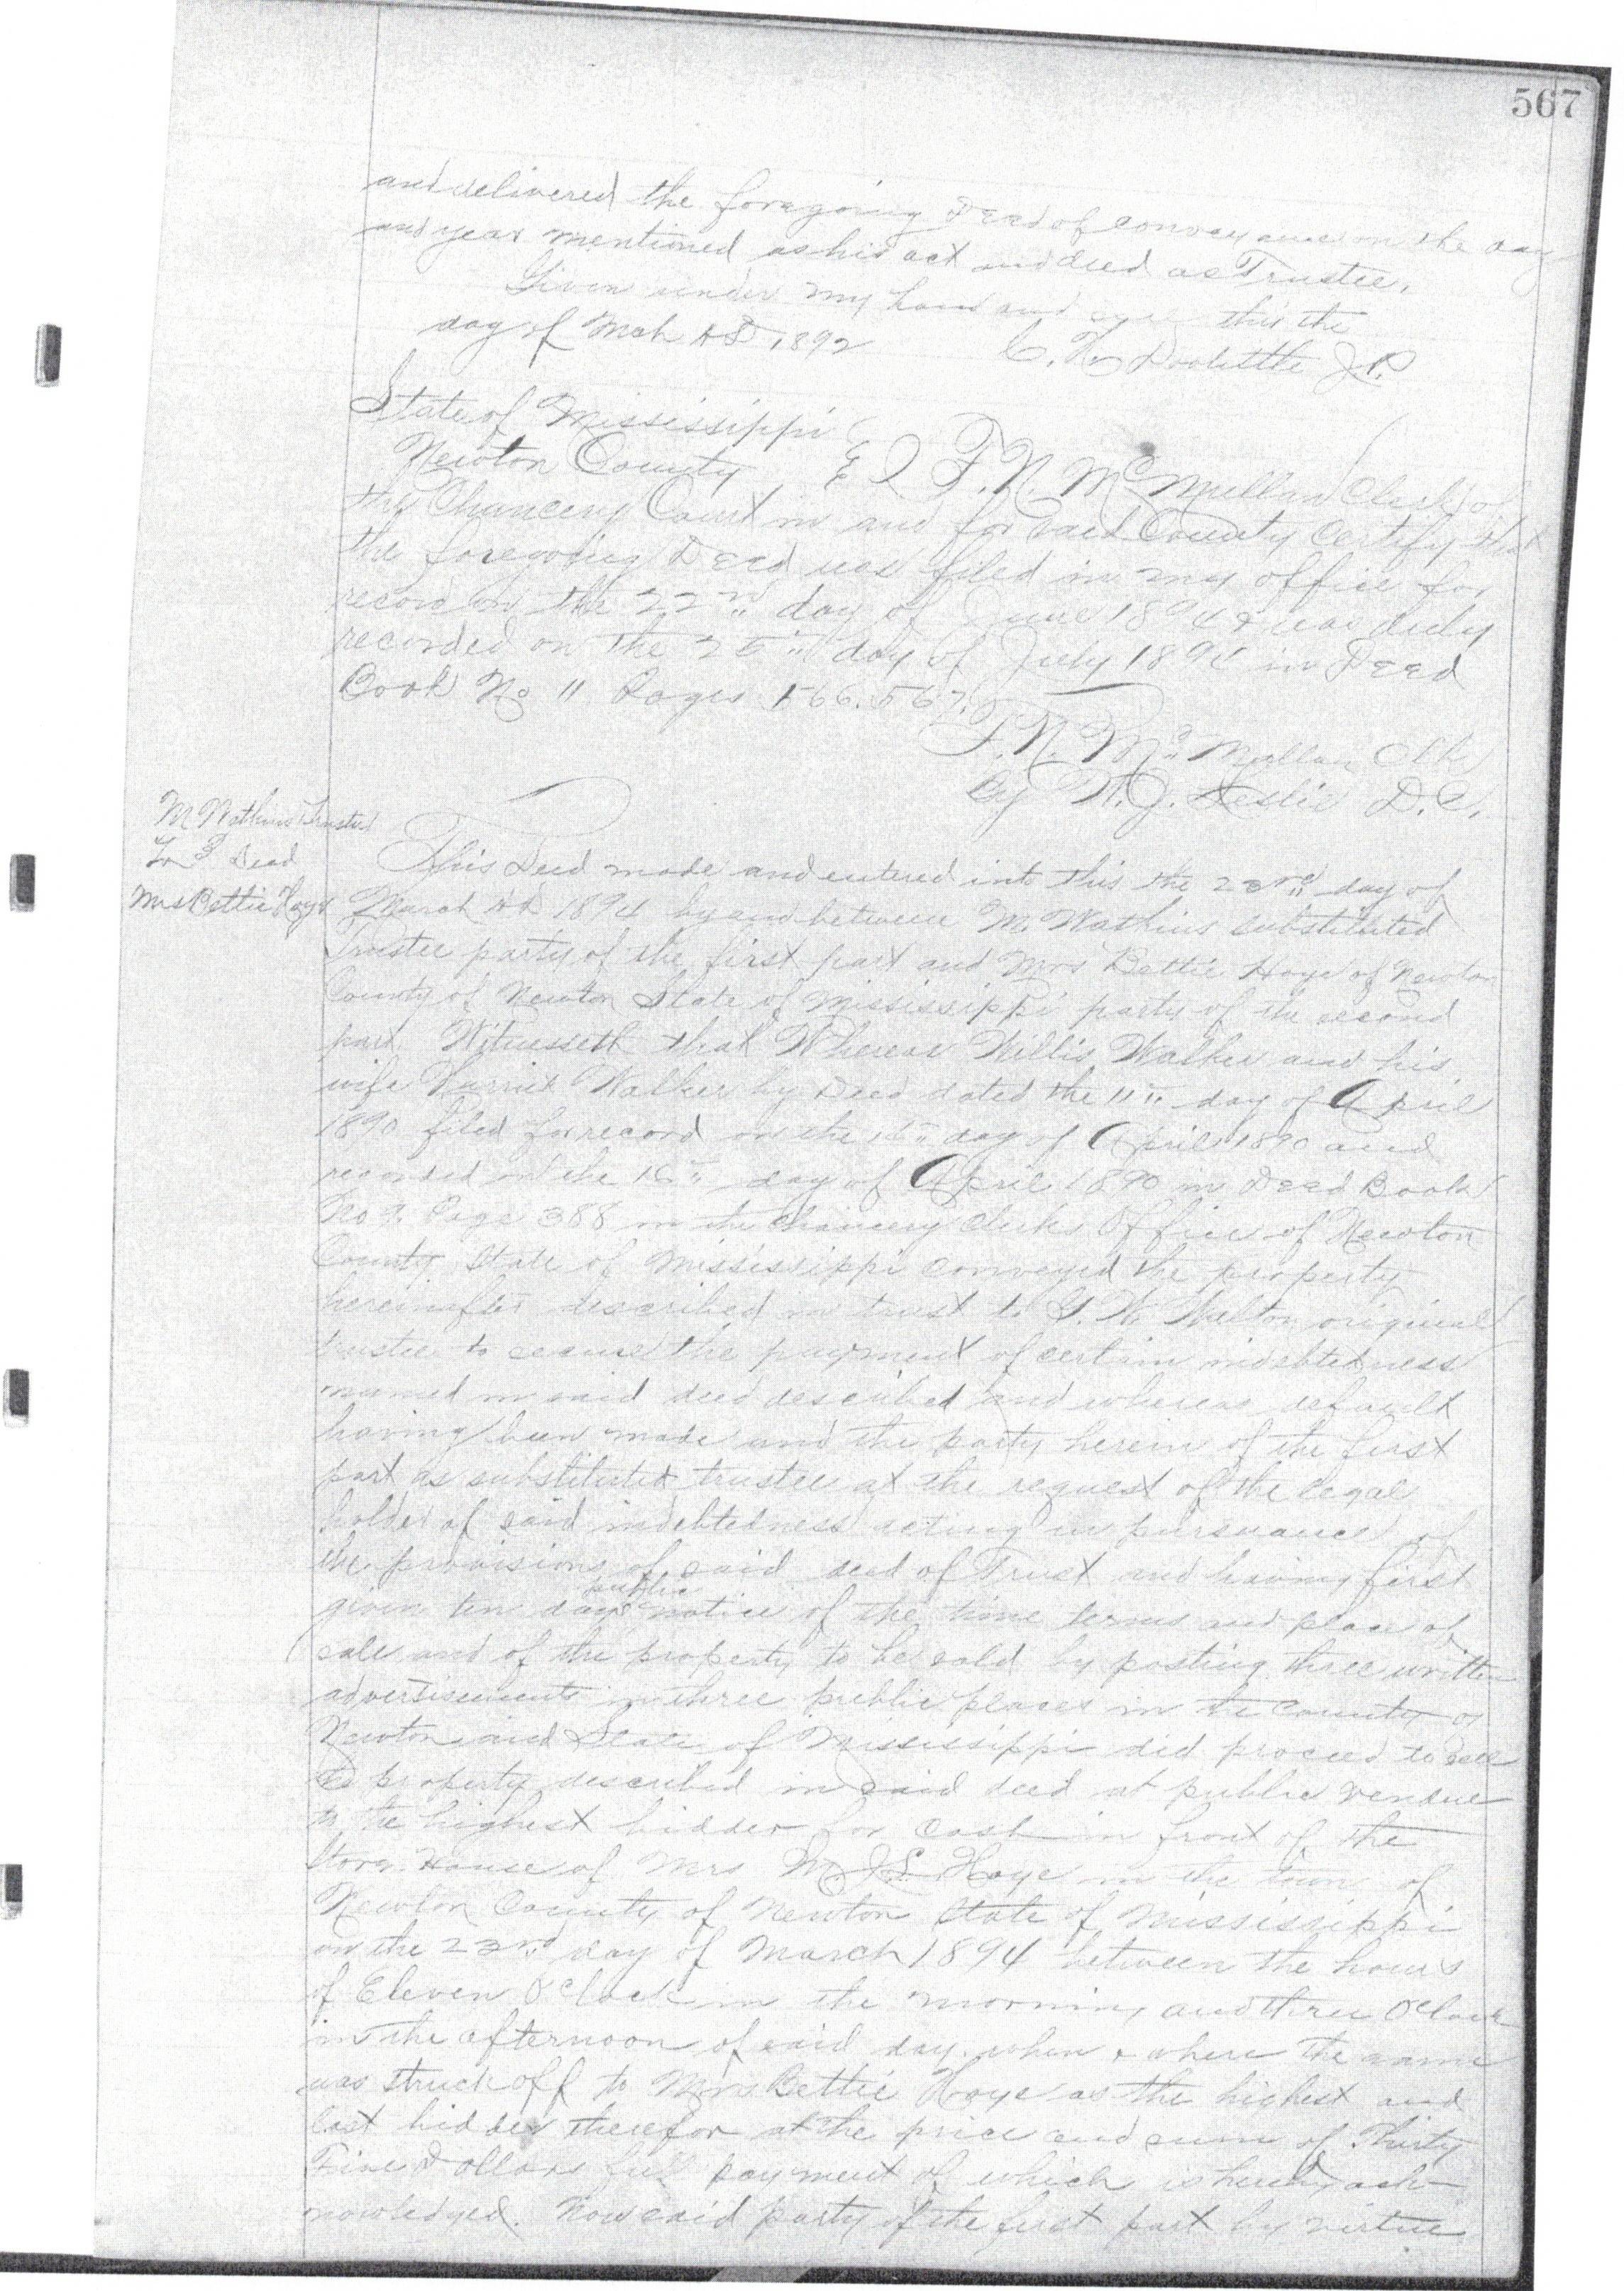 567
and delivered the foregoing Deed of conveyance on the day
and year mentioned as his act and deed as Trustee.
Given under my hand and this the
day of Mch AD 1892 C. N. Doolittle J.P.
State of Mississippi
Newton County I F. N. McMullan Clerk of
the Chancery Court in and for said County Certify that
the foregoing Deed was filed in my office for
record on the 22nd day of June 1894 & was duly
recorded on the 25th day of July 1894 in Deed
Book No 11 Pages 566.567.
F. N. McMullan Clk
By W. J. Leslie D.C.
M Watkins Trustee
To Deed
Mrs Bettie Hoye
This Deed made and entered into this the 23rd day of
March AD 1894 by and between M. Watkins substituted
Trustee party of the first part and Mrs Bettie Hoye of Newton
County of Newton State of Mississippi party of the second
part. Witnesseth that Whereas Willis Walker and his
wife Harriet Walker by Deed dated the 11th day of April
1890 filed for record on the day of April 1890 and
recorded on the 16th day of April 1890 in Deed Book
No 9. Page 388 in the Chancery Clerks Office of Newton
County State of Mississippi conveyed the property
hereinafter described in trust to G. W. Walton original
trustee to secure the payment of certain indebtedness
named in said deed described and whereas default
having been made and the party herein of the first
part as substituted trustee at the request of the legal
holder of said indebtedness acting in pursuance of
the provisions of said deed of Trust and having first
given ten days public notice of the time terms and place of
sale and of the property to be sold by posting three written
advertisements in three public places in the County of
Newton and State of Mississippi did proceed to sell
the property described in said deed at public vendue
to the highest bidder for cash in front of the
Store House of Mrs M. J. L. Hoye in the town of
Newton County of Newton State of Mississippi
on the 23rd day of March 1894 between the hours
of Eleven O'Clock in the morning and three O'Clock
in the afternoon of said day. when & where the same
was struck off to Mrs Bettie Hoye as the highest and
last bidder therefor at the price and sum of Thirty
Five Dollars full payment of which is hereby ack-
nowledged. Now said party of the first part by virtue